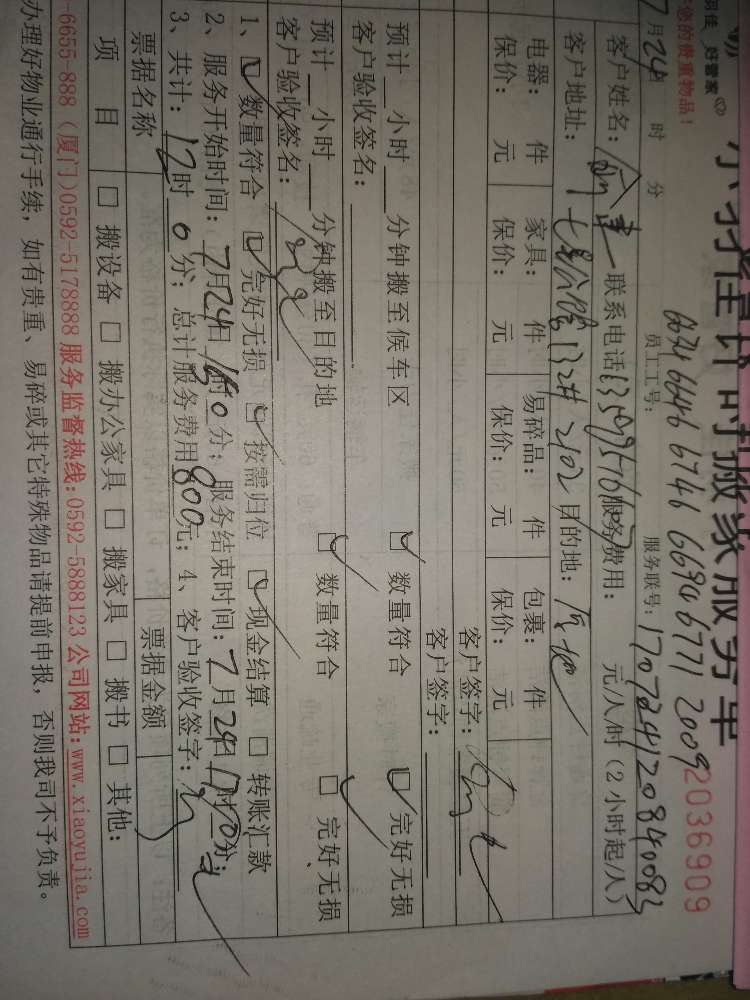 小羽佳计时搬家服务单
羽佳 好管家
您的贵重物品！
2036909
6634 6646 6746 6694 6771 2009
7月24日 时 分 员工工号： 服务联号：170724120840083
客户姓名： 联系电话 服务费用： 元/人/时（2小时起/人）
客户地址： 1322# 2102 目的地：
电器： 件 家具： 件 易碎品： 件 包裹： 件 客户签字：
保价： 元 保价： 元 保价： 元 保价： 元
客户签字：
预计 小时 分钟搬至候车区 □ 数量符合 □ 完好无损
客户验收签名：
预计 小时 分钟搬至目的地 □ 数量符合 □ 完好无损
客户验收签名：
1、□ 数量符合 □ 完好无损 □ 按需归位 □ 现金结算 □ 转账汇款
2、服务开始时间：7月24日 时 分；服务结束时间：7月24日 时 分；
3、共计：12时0分；总计服务费用800元；4、客户验收签字：
票据名称 票据金额
项 目 □ 搬设备 □ 搬办公家具 □ 搬家具 □ 搬书 □ 其他：
-6655-888（厦门）0592-5178888 服务监督热线：0592-5888123 公司网站：www.xiaoyujia.com
办理好物业通行手续，如有贵重、易碎或其它特殊物品请提前申报，否则我司不予负责。